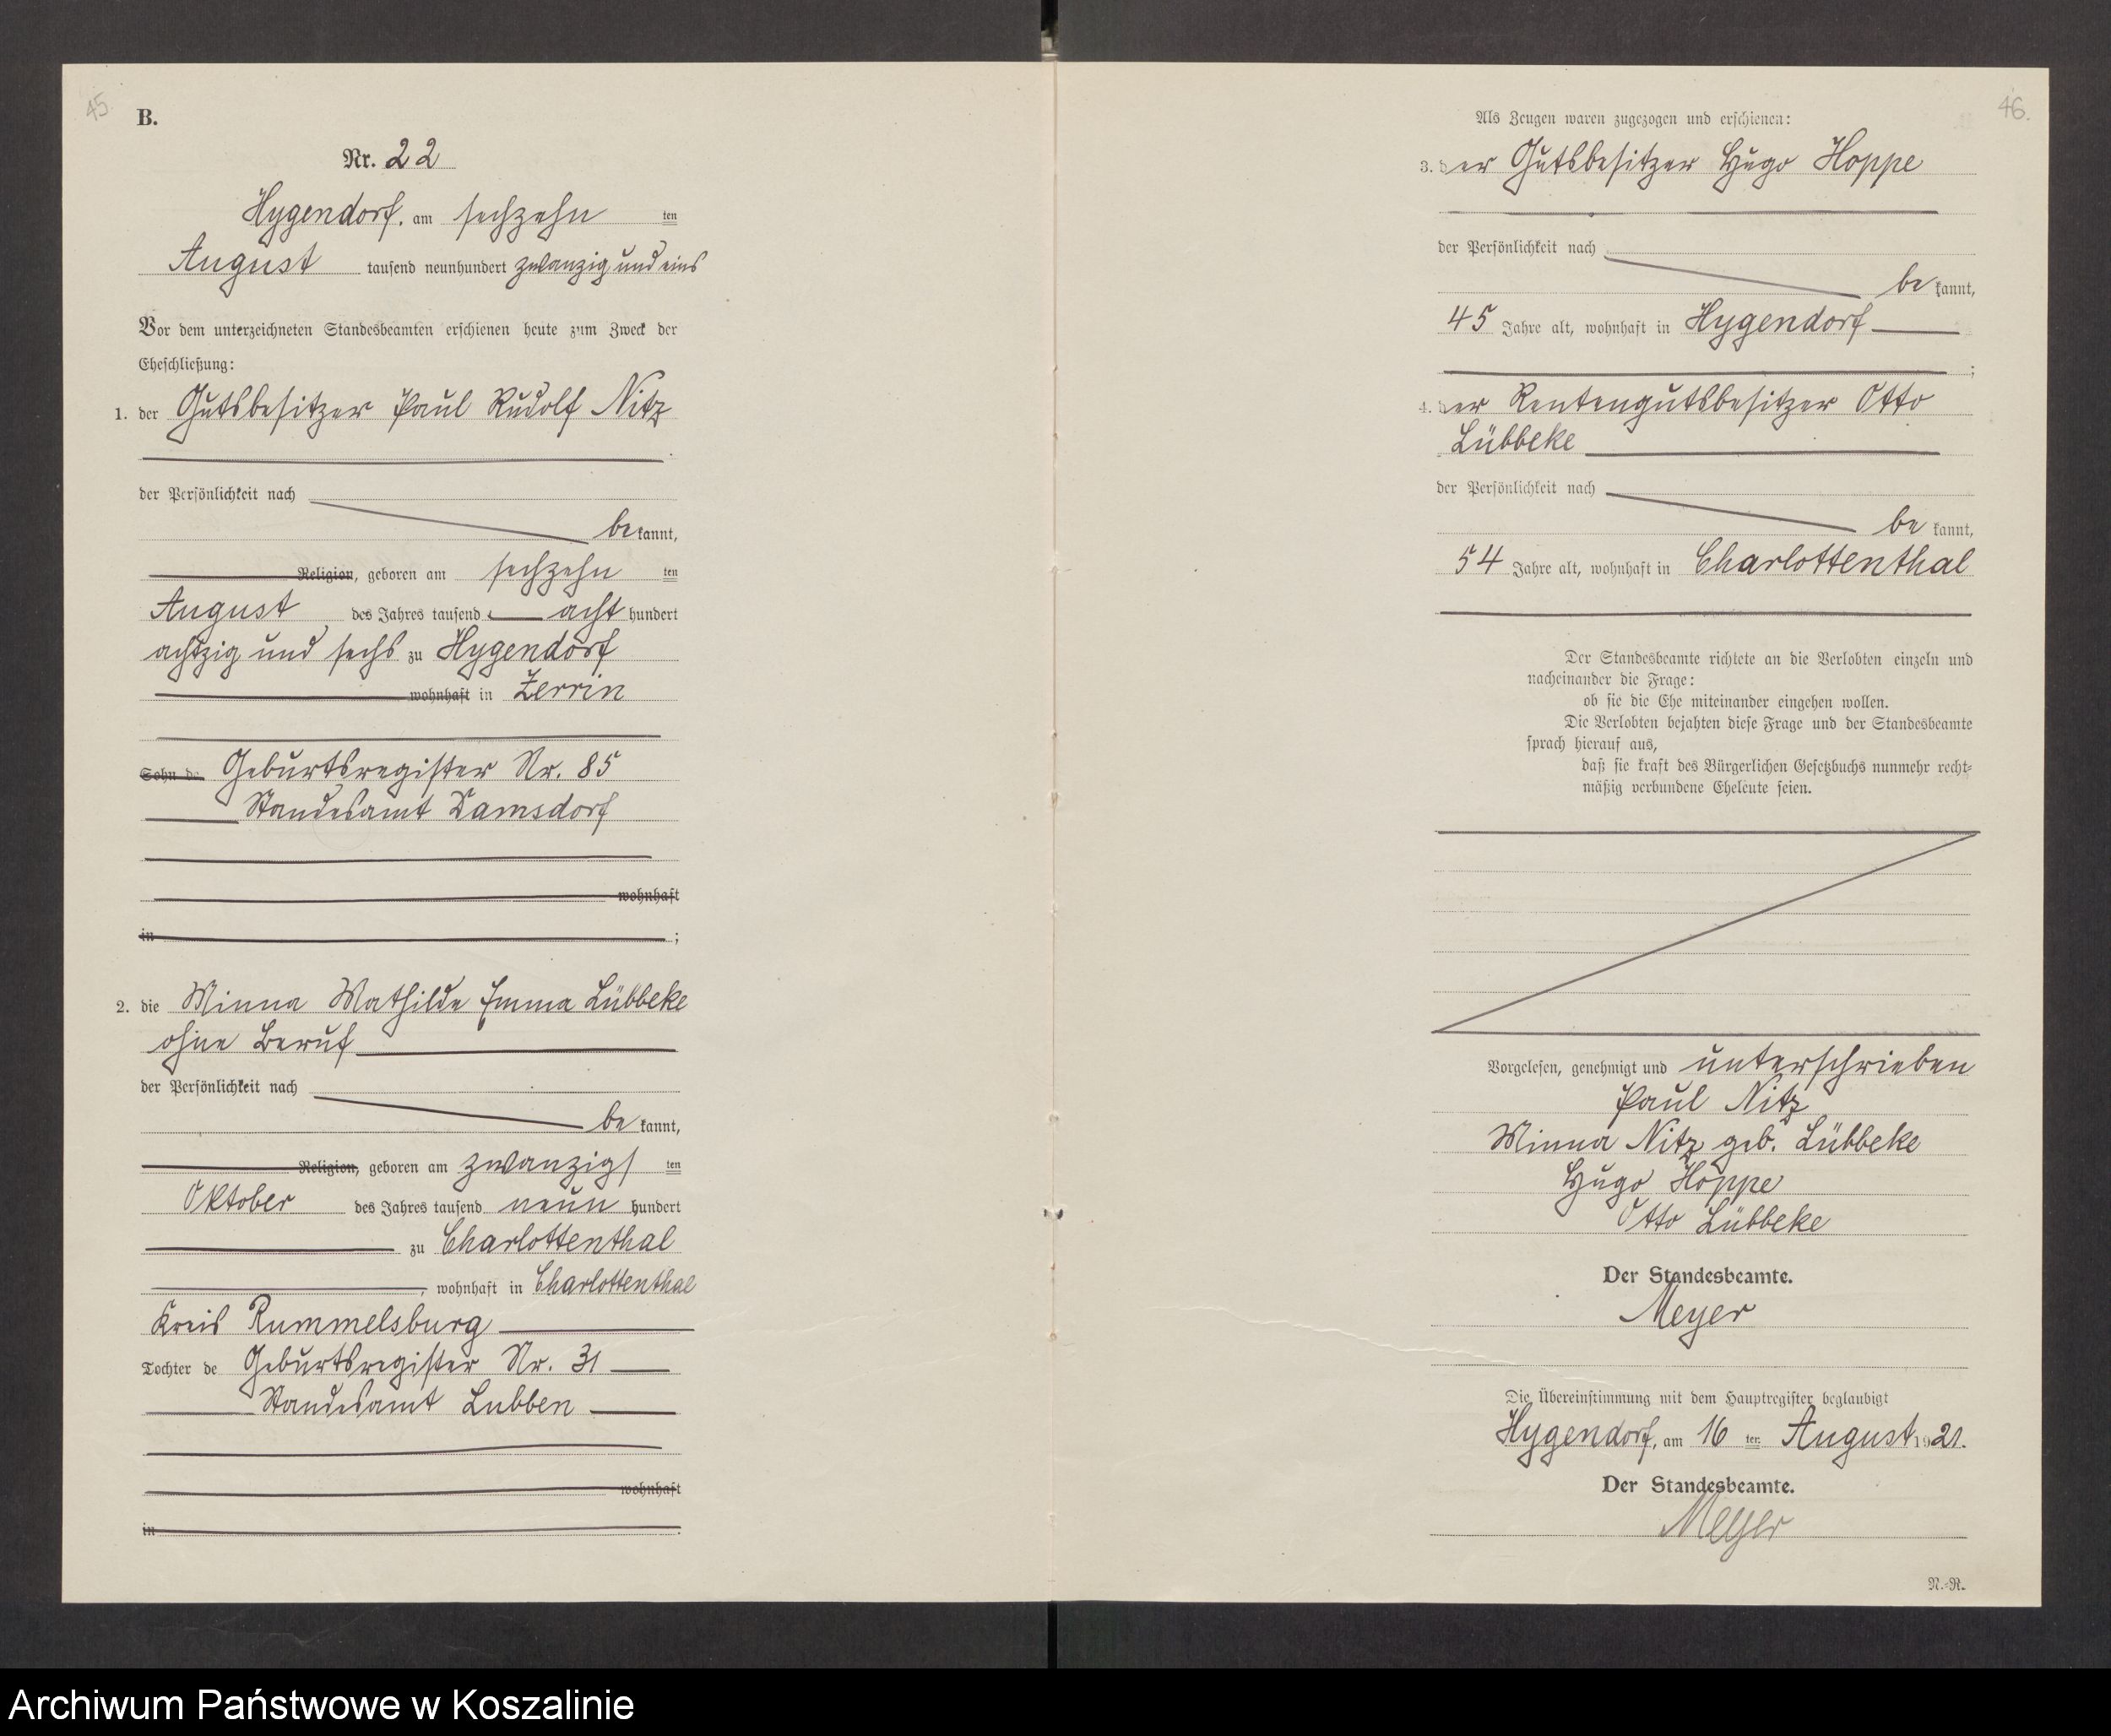 45.
B.
Nr. 22
Hygendorf, am sechzehn ten
August tausend neunhundert zwanzig und eins
Vor dem unterzeichneten Standesbeamten erschienen heute zum Zweck der
Eheschließung:
1. der Gutsbesitzer Paul Rudolf Nitz
der Persönlichkeit nach
be kannt,
Religion, geboren am sechzehn ten
August des Jahres tausend acht hundert
achtzig und sechs zu Hygendorf
wohnhaft in Zerrin
Sohn de Geburtsregister Nr. 85
Standesamt Damsdorf
wohnhaft
in ;
2. die Minna Mathilde Emma Lübbeke
ohne Beruf
der Persönlichkeit nach
be kannt,
Religion, geboren am zwanzigs ten
Oktober des Jahres tausend neun hundert
zu Charlottenthal
, wohnhaft in Charlottenthal
Kreis Rummelsburg
Tochter de Geburtsregister Nr. 31
Standesamt Lubben
wohnhaft
in .
46.
Als Zeugen waren zugezogen und erschienen:
3. der Gutsbesitzer Hugo Hoppe
der Persönlichkeit nach
be kannt,
45 Jahre alt, wohnhaft in Hygendorf
;
4. der Rentengutsbesitzer Otto
Lübbeke
der Persönlichkeit nach
be kannt,
54 Jahre alt, wohnhaft in Charlottenthal
Der Standesbeamte richtete an die Verlobten einzeln und
nacheinander die Frage:
ob sie die Ehe miteinander eingehen wollen.
Die Verlobten bejahten diese Frage und der Standesbeamte
sprach hierauf aus,
daß sie kraft des Bürgerlichen Gesetzbuchs nunmehr recht-
mäßig verbundene Eheleute seien.
Vorgelesen, genehmigt und unterschrieben
Paul Nitz
Minna Nitz geb. Lübbeke
Hugo Hoppe
Otto Lübbeke
Der Standesbeamte.
Meyer
Die Übereinstimmung mit dem Hauptregister beglaubigt
Hygendorf, am 16 ten August 1921.
Der Standesbeamte.
Meyer
N.-R.
Archiwum Państwowe w Koszalinie